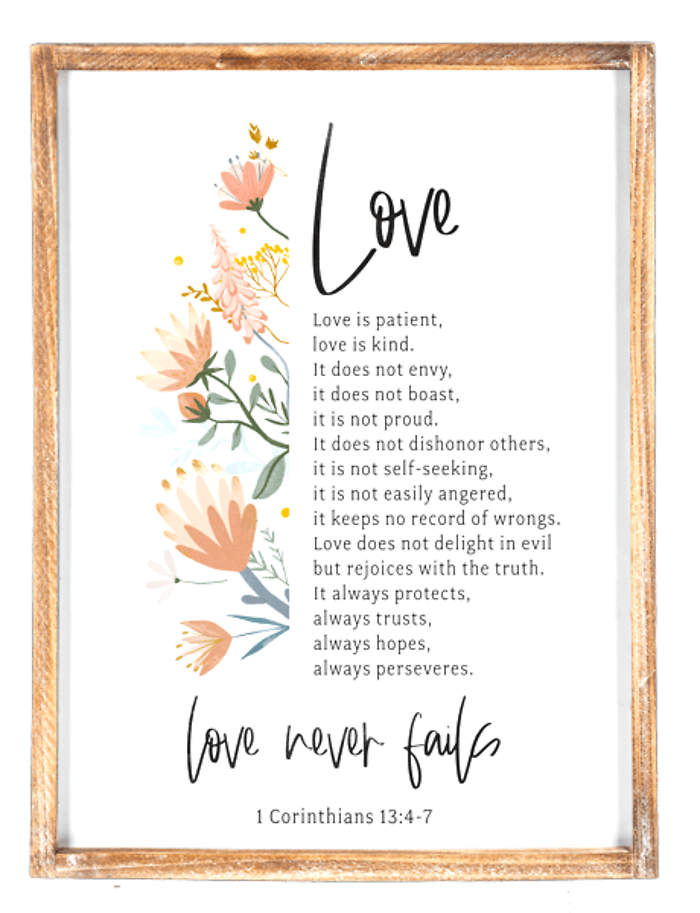 Love
Love is patient,
love is kind.
It does not envy,
it does not boast,
it is not proud.
It does not dishonor others,
it is not self-seeking,
it is not easily angered,
it keeps no record of wrongs.
Love does not delight in evil
but rejoices with the truth.
It always protects,
always trusts,
always hopes,
always perseveres.
love never fails
1 Corinthians 13:4-7